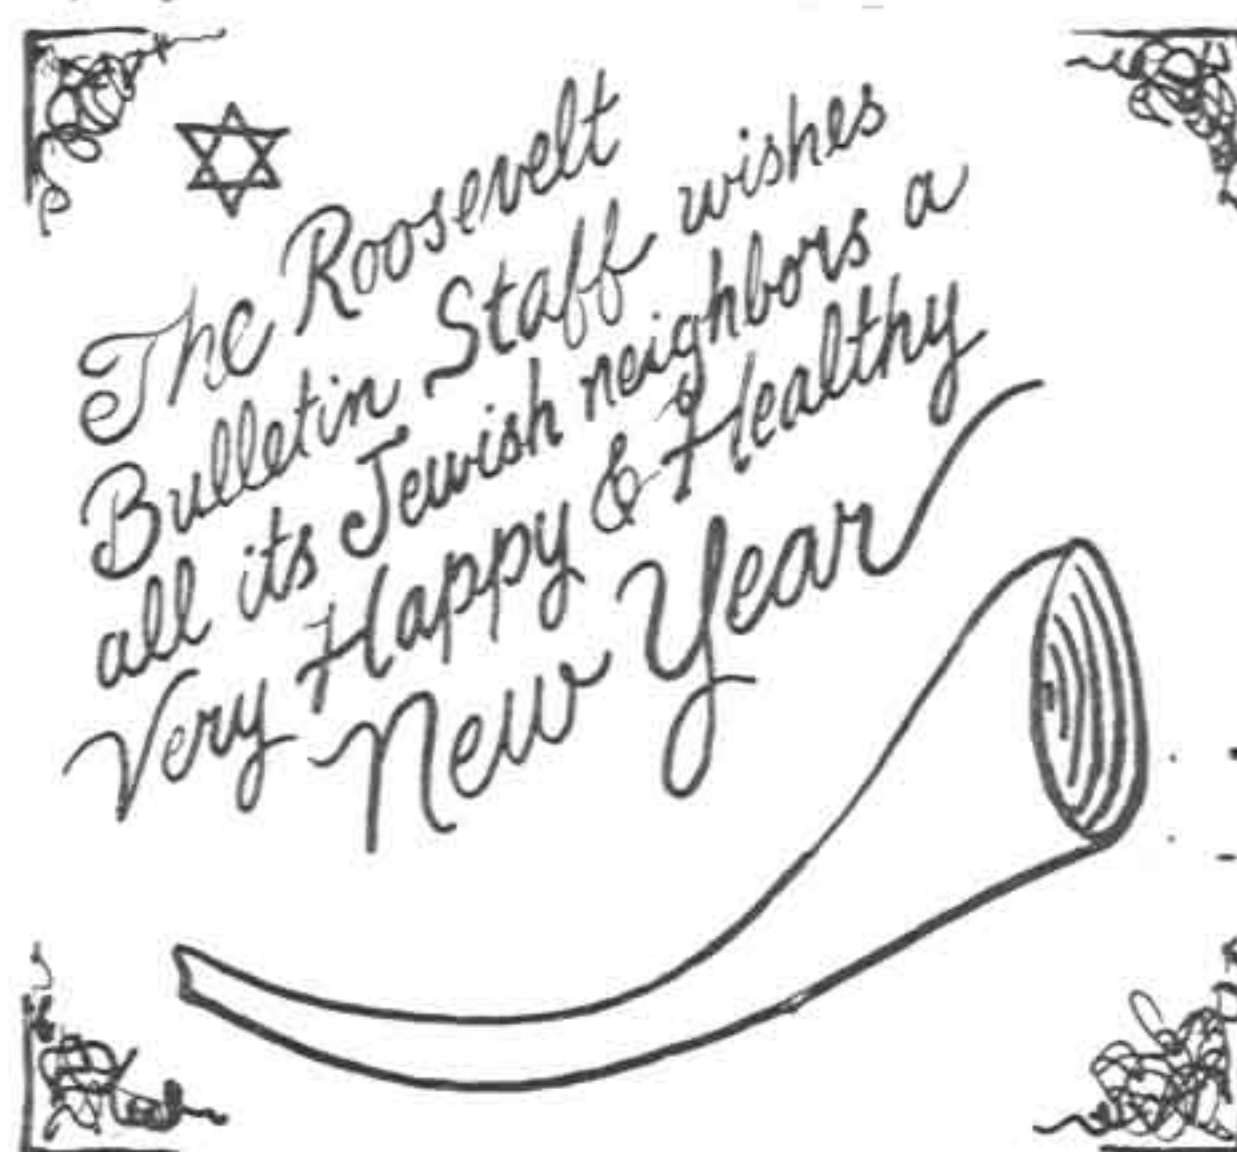 The Roosevelt
Bulletin Staff wishes
all its Jewish neighbors a
Very Happy & Healthy
New Year